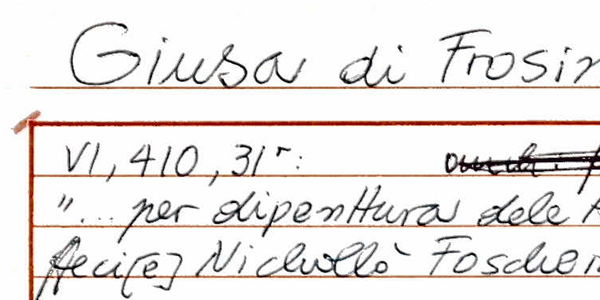 Giusa di Frosin
VI, 410, 31r:
"... per dipenttura dele
feci[e] Nichollò Foscher